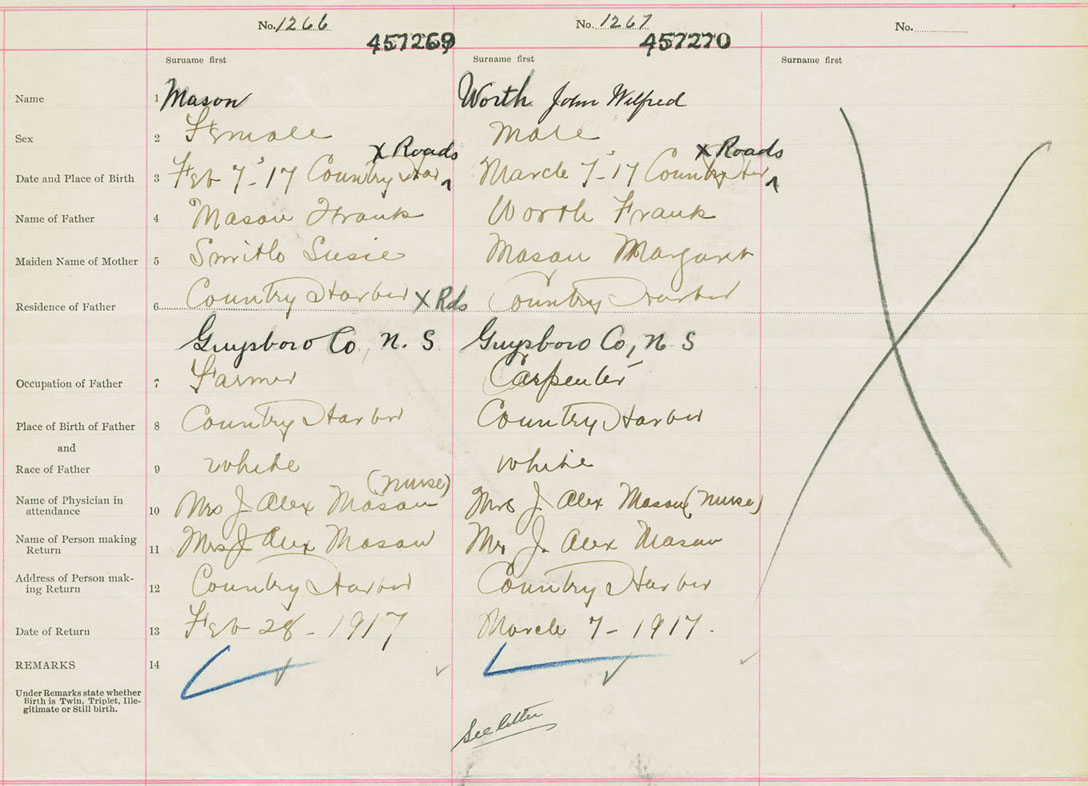 No. 1266 No. 1267 No.
457269 457270
Surname first Surname first Surname first
Name 1 Mason Worth John Wilfred
Sex 2 Female Male
X Roads X Roads
Date and Place of Birth 3 Feb 7-'17 Country Har ^ March 7-'17 Country Har ^
Name of Father 4 Mason Frank Worth Frank
Maiden Name of Mother 5 Smith Susie Mason Margaret
Residence of Father 6 Country Harbor X Rds Country Harbor
Guysboro Co, N. S Guysboro Co, N S
Occupation of Father 7 Farmer Carpenter
Place of Birth of Father 8 Country Harbor Country Harbor
and
Race of Father 9 White White
(nurse)
Name of Physician in
attendance 10 Mrs J Alex Mason Mrs J. Alex Mason (Nurse)
Name of Person making
Return 11 Mrs J Alex Mason Mr J. Alex Mason
Address of Person mak-
ing Return 12 Country Harbor Country Harbor
Date of Return 13 Feb 28 - 1917 March 7 - 1917.
REMARKS 14
Under Remarks state whether
Birth is Twin, Triplet, Ille-
gitimate or Still birth.
See letter